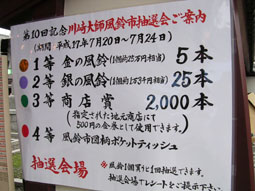 第10回記念川崎大師風鈴市抽選会ご案内
(期間 平成17年7月20日~7月24日)
1等 金の風鈴(1個約25万円相当) 5本
2等 銀の風鈴(1個約1万3千円相当) 25本
3等 商店賞 2,000本
(指定された地元商店にて
500円の金券として使用できます。)
4等 風鈴市図柄ポケットティッシュ
抽選会場
※風鈴1個買うと1回抽選できます。
抽選会場でレシートをご提示下さい。